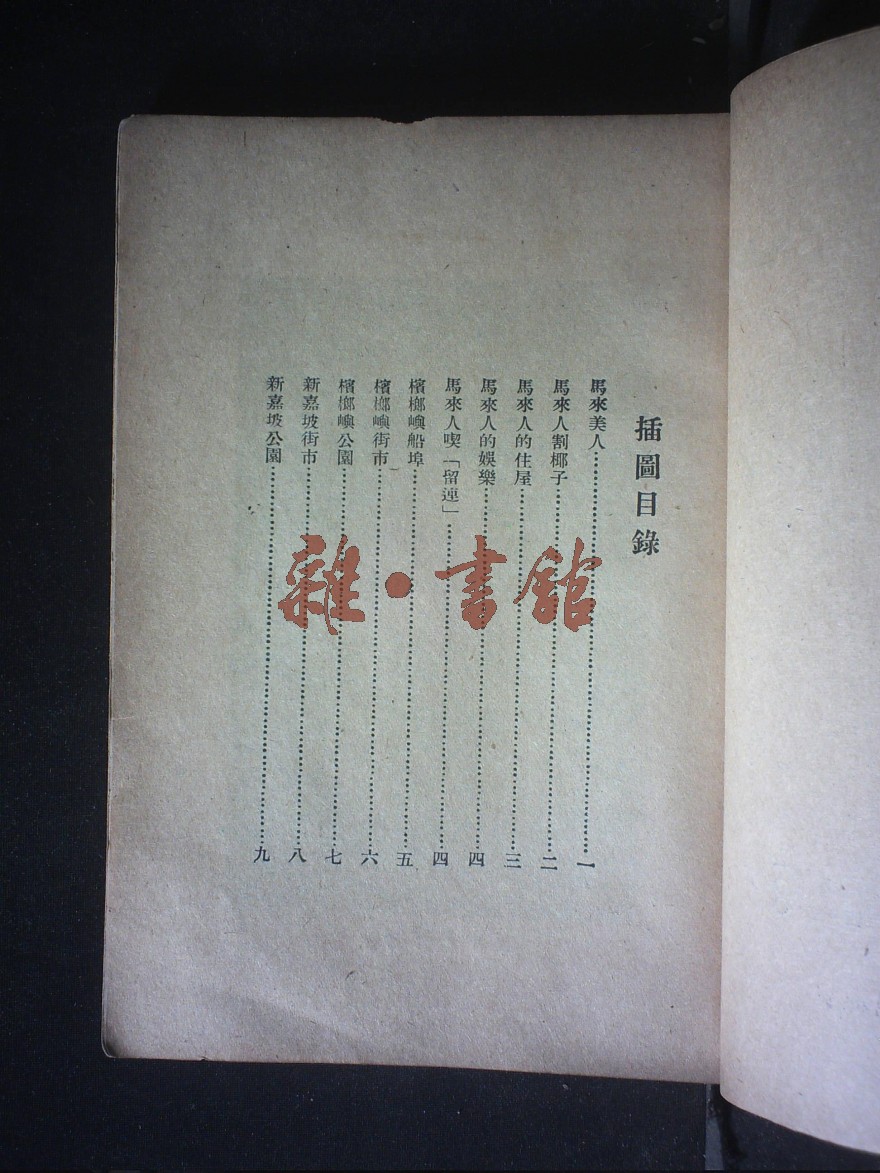 插圖目錄
馬來美人……一
馬來人割椰子……二
馬來人的住屋……三
馬來人的娛樂……四
馬來人喫「留連」……四
檳榔嶼船埠……五
檳榔嶼街市……六
檳榔嶼公園……七
新嘉坡街市……八
新嘉坡公園……九
雜·書館